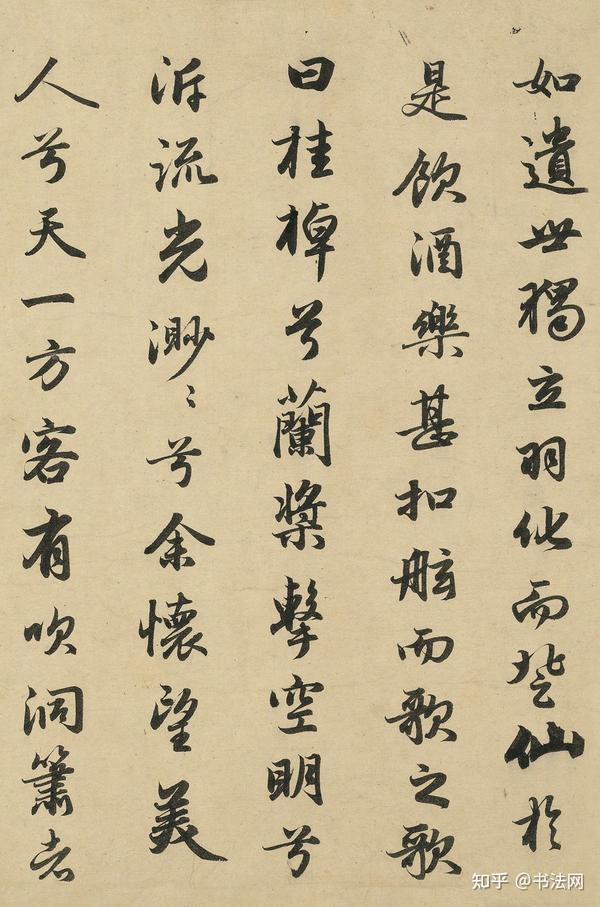 如遺世獨立羽化而登仙於
是飲酒樂甚扣舷而歌之歌
曰桂棹兮蘭槳擊空明兮
泝流光渺〻兮余懷望美
人兮天一方客有吹洞簫者
知乎 @书法网